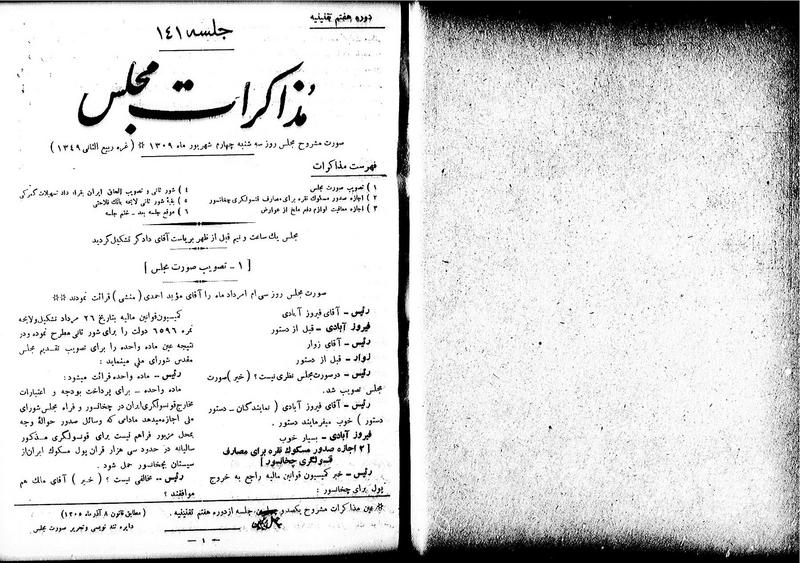 دوره هفتم تقنینیه
جلسه ۱۴۱
مذاکرات مجلس
صورت مشروح مجلس روز سه شنبه چهارم شهریور ماه ۱۳۰۹ * ( غره ربیع الثانی ۱۳۴۹ )
فهرست مذاکرات
۱ ) تصویب صورت مجلس
۲ ) اجازه صدور مسکوك نقره برای مصارف قنسولگری چخانسور
۳ ) اجازه معافیت لوازم دفع ملخ از عوارض
۴ ) شور ثانی و تصویب الحاق ایران بقرار داد تسهیلات گمرکی
۵ ) بقیه شور ثانی لایحه بانك فلاحتی
۶ ) موقع جلسه بعد - ختم جلسه
مجلس یك ساعت و نیم قبل از ظهر بریاست آقای دادگر تشکیل گردید
[ ۱ - تصویب صورت مجلس ]
صورت مجلس روز سی ام امرداد ماه را آقای مؤید احمدی ( منشی ) قرائت نمودند **
رئیس - آقای فیروز آبادی
فیروز آبادی - قبل از دستور
رئیس - آقای زوار
زوار - قبل از دستور
رئیس - در صورت مجلس نظری نیست ؟ ( خیر ) صورت
مجلس تصویب شد .
رئیس - آقای فیروز آبادی ( نمایندگان - دستور
دستور ) خوب میفرمایند دستور .
فیروز آبادی - بسیار خوب
[ ۲ اجازه صدور مسکوك نقره برای مصارف
قنسولگری چخانسور ]
رئیس - خبر کمیسیون قوانین مالیه راجع به خروج
پول برای چخانسور :
کمیسیون قوانین مالیه بتاریخ ۲۶ مرداد تشکیل و لایحه
نمره ۶۵۹۶ دولت را برای شور ثانی مطرح نموده و در
نتیجه عین ماده واحده را برای تصویب تقدیم مجلس
مقدس شورای ملی مینماید :
رئیس - ماده واحده قرائت میشود :
ماده واحده - برای پرداخت بودجه و اعتبارات
مخارج قونسولگری ایران در چخانسور و فراه مجلس شورای
ملی اجازه میدهد مادامی که وسائل صدور حوالهٔ وجه
بمحل مزبور فراهم نیست برای قونسولگری مذکور
سالیانه در حدود سی هزار قران پول مسکوك ایران از
سیستان بچخانسور حمل شود .
رئیس - مخالفی نیست ؟ ( خیر ) آقای مالك هم
موافقند ؟
* عین مذاکرات مشروح یکصدو جلسه از دوره هفتم تقنینیه .
( مطابق قانون ۸ آذر ماه ۱۳۰۵ )
دایره تند نویسی و تحریر صورت مجلس
- ۱ -